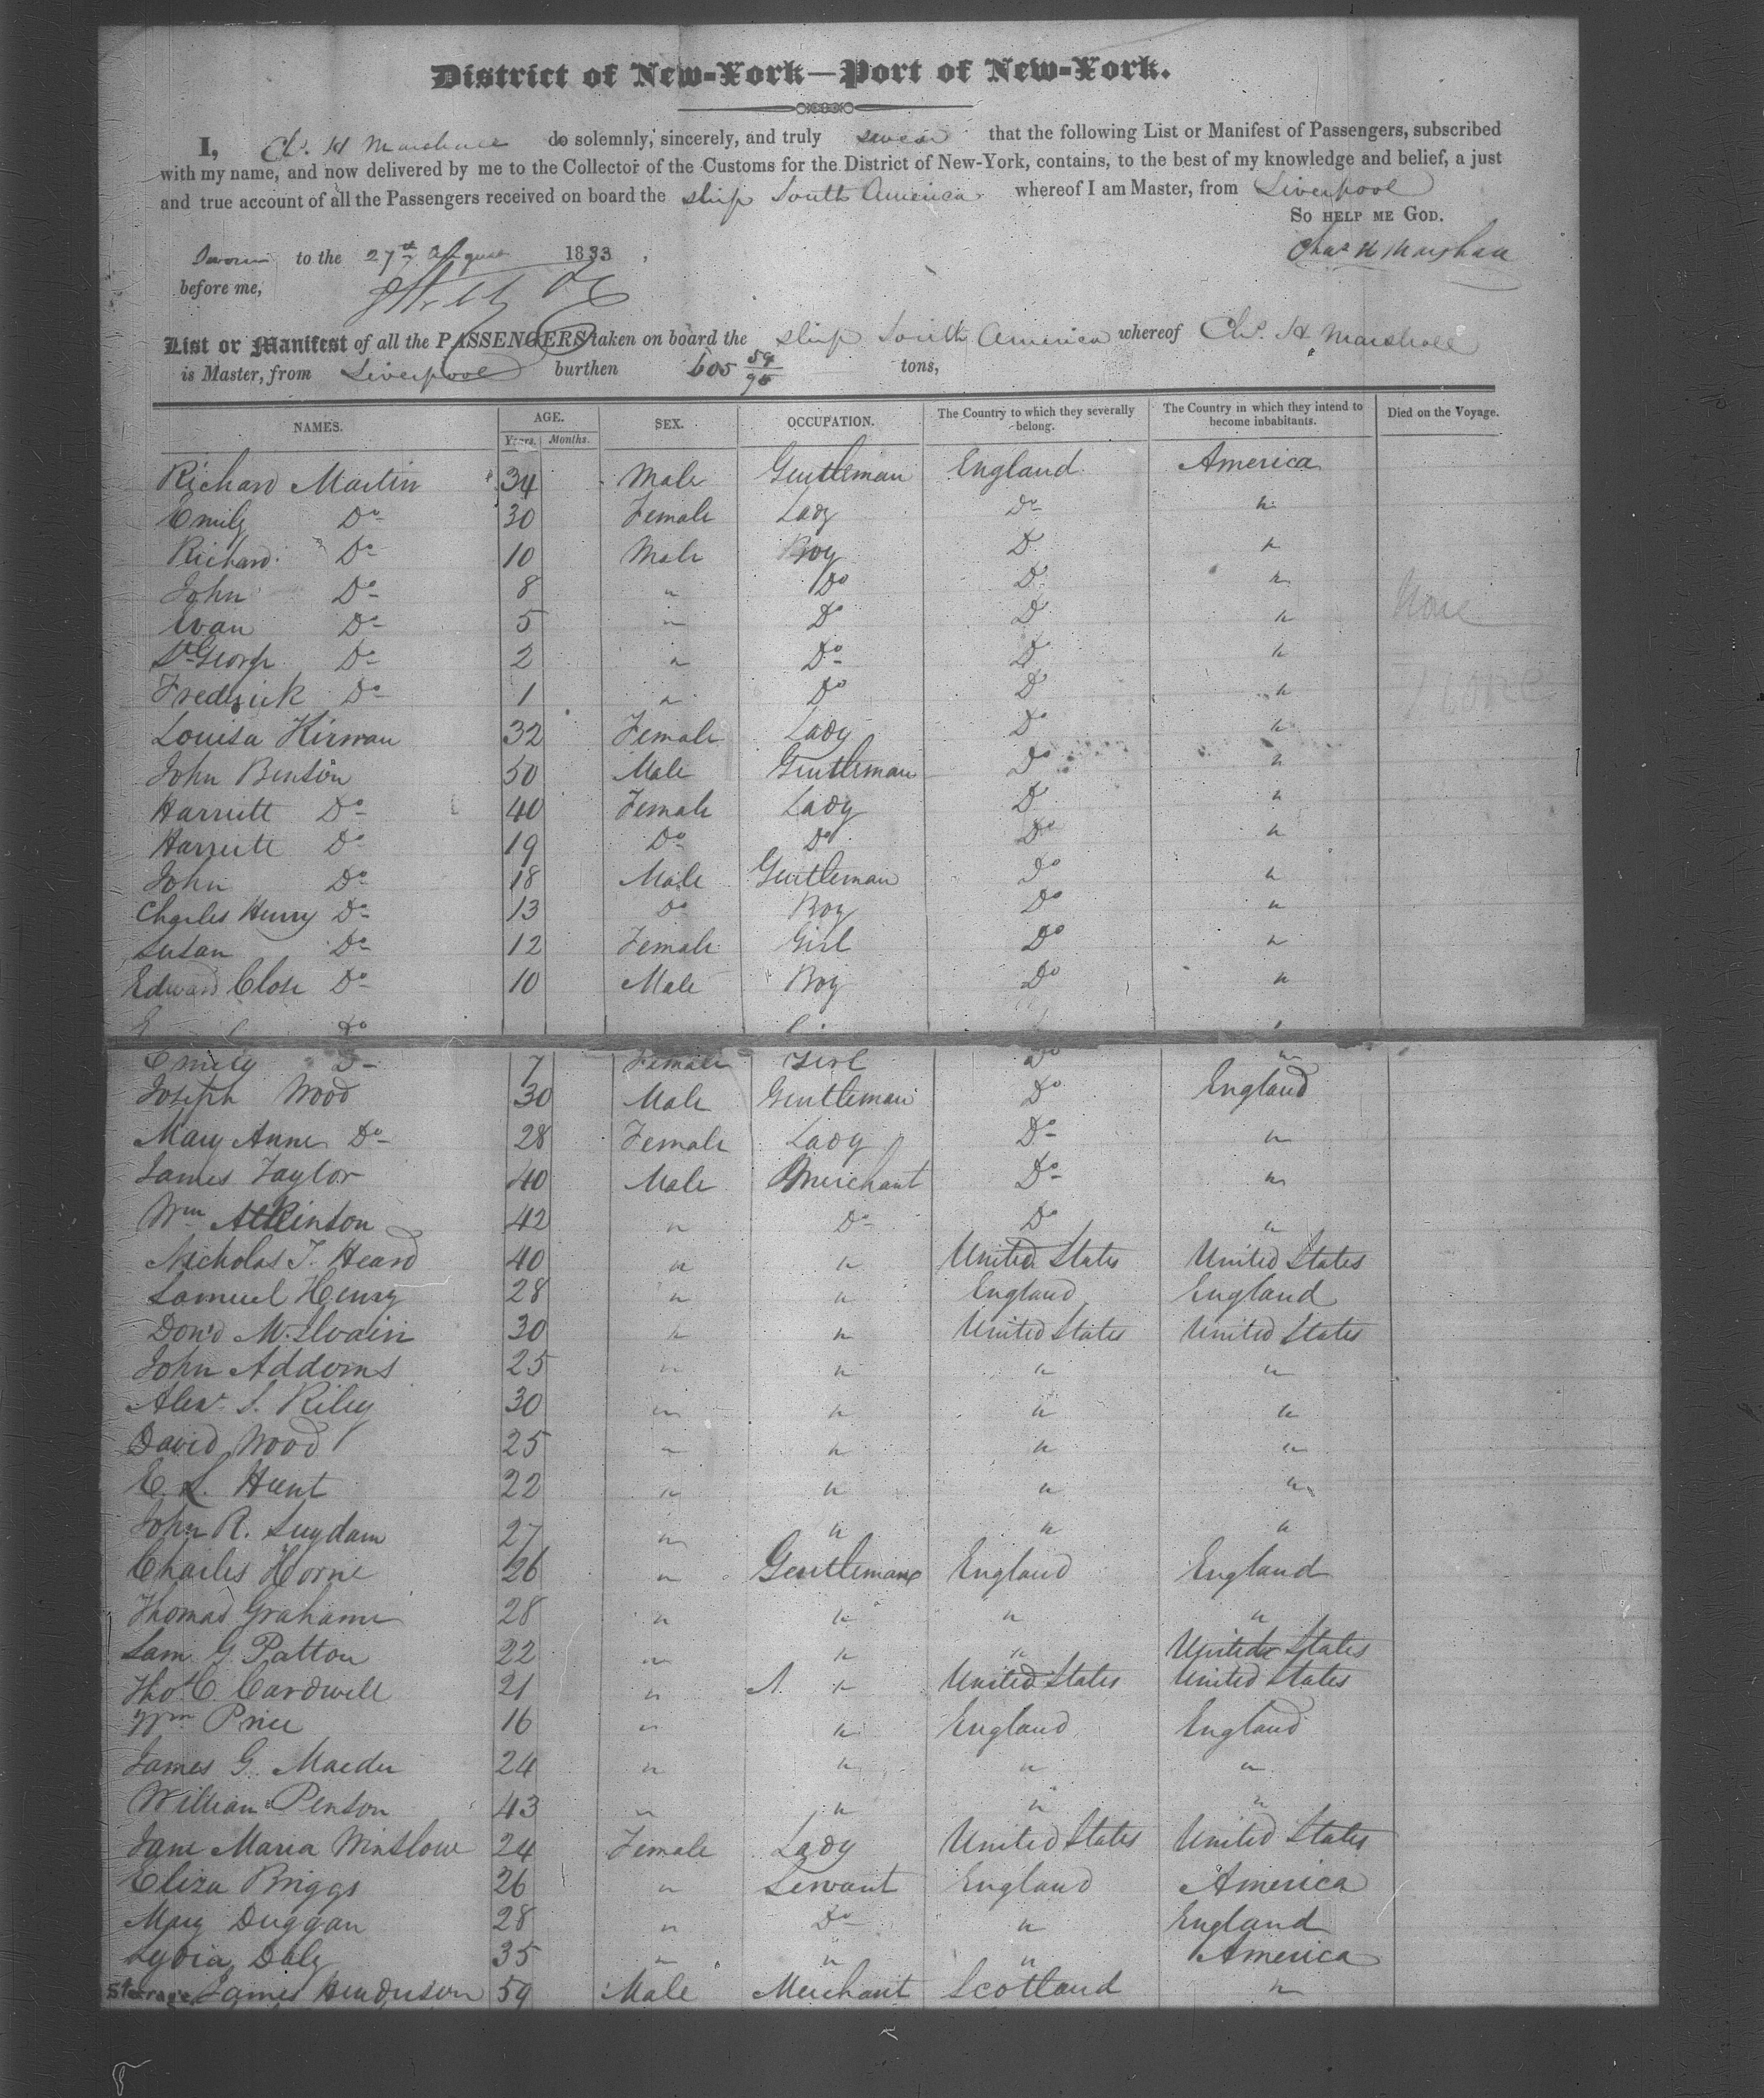 District of New-York—Port of New-York.
I, Chs. H Marshall do solemnly, sincerely, and truly swear that the following List or Manifest of Passengers, subscribed
with my name, and now delivered by me to the Collector of the Customs for the District of New-York, contains, to the best of my knowledge and belief, a just
and true account of all the Passengers received on board the ship South America whereof I am Master, from Liverpool
SO HELP ME GOD.
Chas H Marshall
Sworn to the 27th August 1833
before me,
List or Manifest of all the PASSENGERS taken on board the ship South America whereof Chs. H Marshall
is Master, from Liverpool burthen 605 59/95 tons,
NAMES. AGE. SEX. OCCUPATION. The Country to which they severally belong. The Country in which they intend to become inhabitants. Died on the Voyage.
Years. Months.
Richard Martin 34 Male Gentleman England America
Emily Do 30 Female Lady Do "
Richard Do 10 Male Boy D "
John Do 8 " Do D "
Ivan Do 5 " Do D " None
St George Do 2 " Do D "
Frederick Do 1 " Do D " None
Louisa Kirwan 32 Female Lady Do "
John Benson 50 Male Gentleman Do "
Harriett Do 40 Female Lady D "
Harriett Do 19 Do Do Do "
John Do 18 Male Gentleman Do "
Charles Henry Do 13 Do Boy Do "
Susan Do 12 Female Girl Do "
Edward Close Do 10 Male Boy Do "
Do
Emily D 7 Female Girl Do "
Joseph Wood 30 Male Gentleman Do England
Mary Anne Do 28 Female Lady Do "
James Taylor 40 Male Merchant Do "
Wm Atkinson 42 " Do Do "
Nicholas T. Heard 40 " " United States United States
Samuel Henry 28 " " England England
Don'd McIlvain 30 " " United States United States
John Addoms 25 " " " "
Alexr. S. Riley 30 " " " "
David Wood 25 " " " "
E. L. Hunt 22 " " " "
John R. Suydam 27 " " " "
Charles Horne 26 " Gentleman England England
Thomas Grahame 28 " " " "
Sam G Patton 22 " " " United States
Tho C. Cardwell 21 " " United States United States
Wm Price 16 " " England England
James G. Maeder 24 " " " "
William Penson 43 " " " "
Jane Maria Winslow 24 Female Lady United States United States
Eliza Briggs 26 " Servant England America
Mary Duggan 28 " Do " England
Lydia Daly 35 " " " America
Steerage James Henderson 59 Male Merchant Scotland "